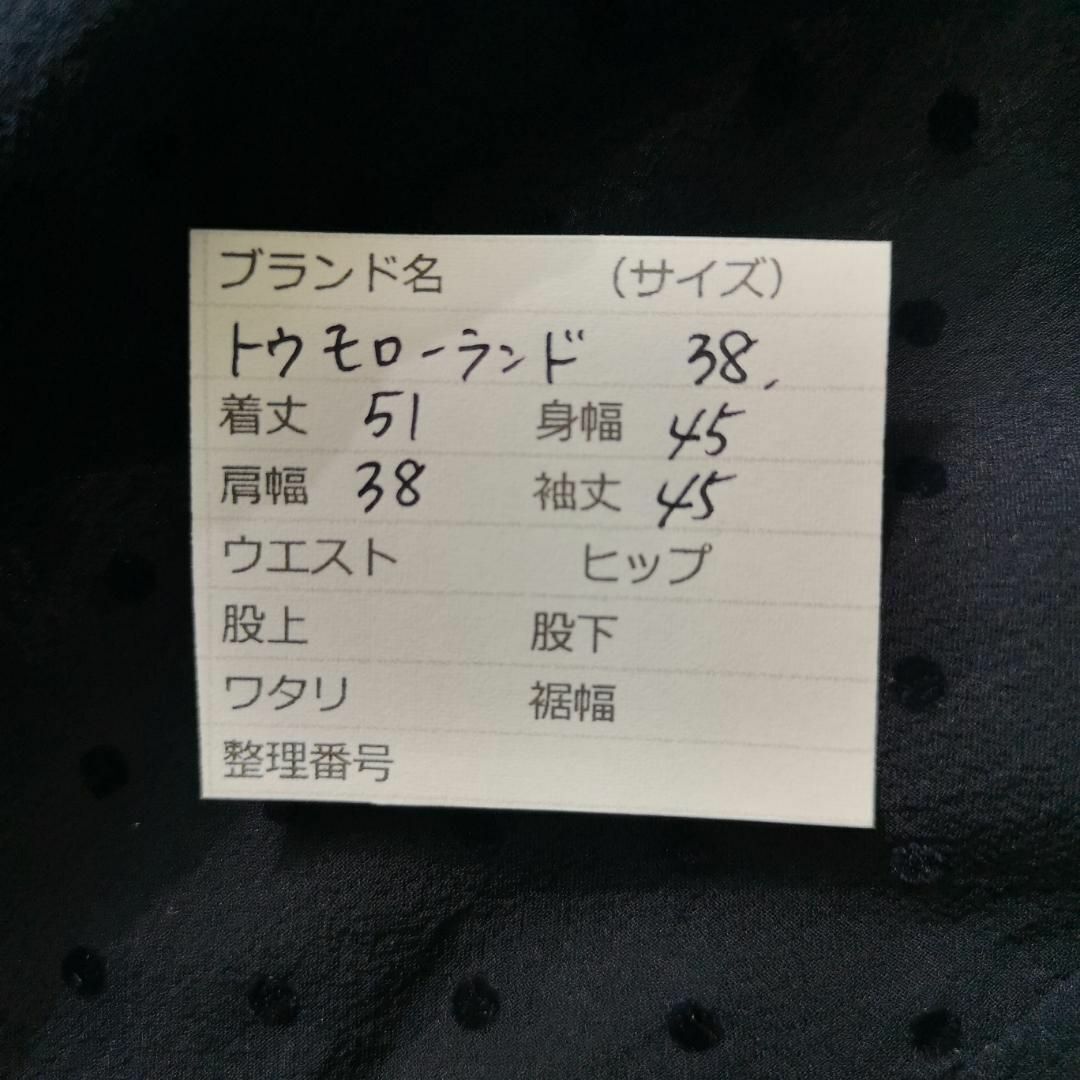 ブランド名 (サイズ)
トゥモローランド 38.
着丈 51 身幅 45
肩幅 38 袖丈 45
ウエスト ヒップ
股上 股下
ワタリ 裾幅
整理番号